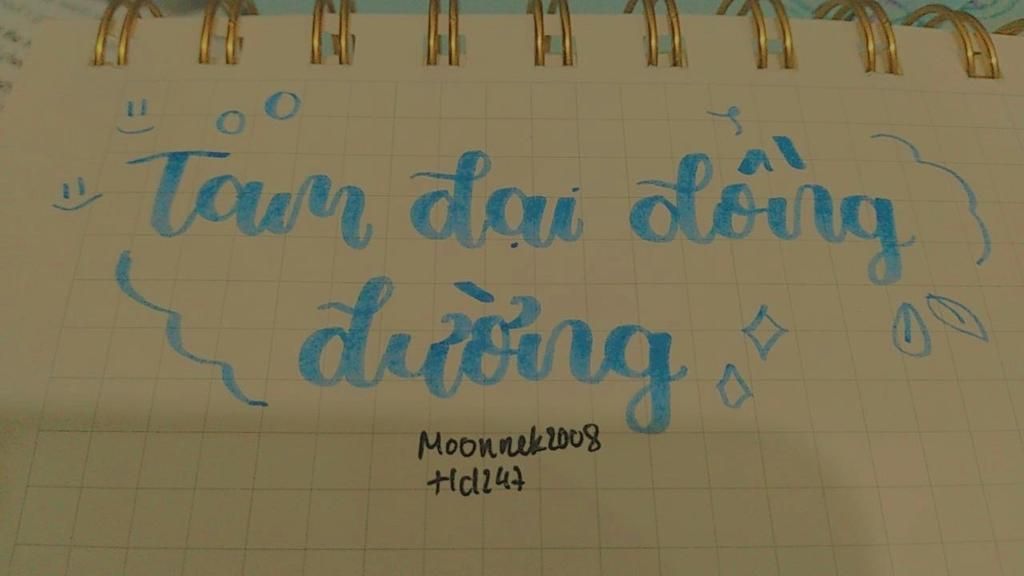 Tam đại đồng
đường
Moonnek2008
Hd247